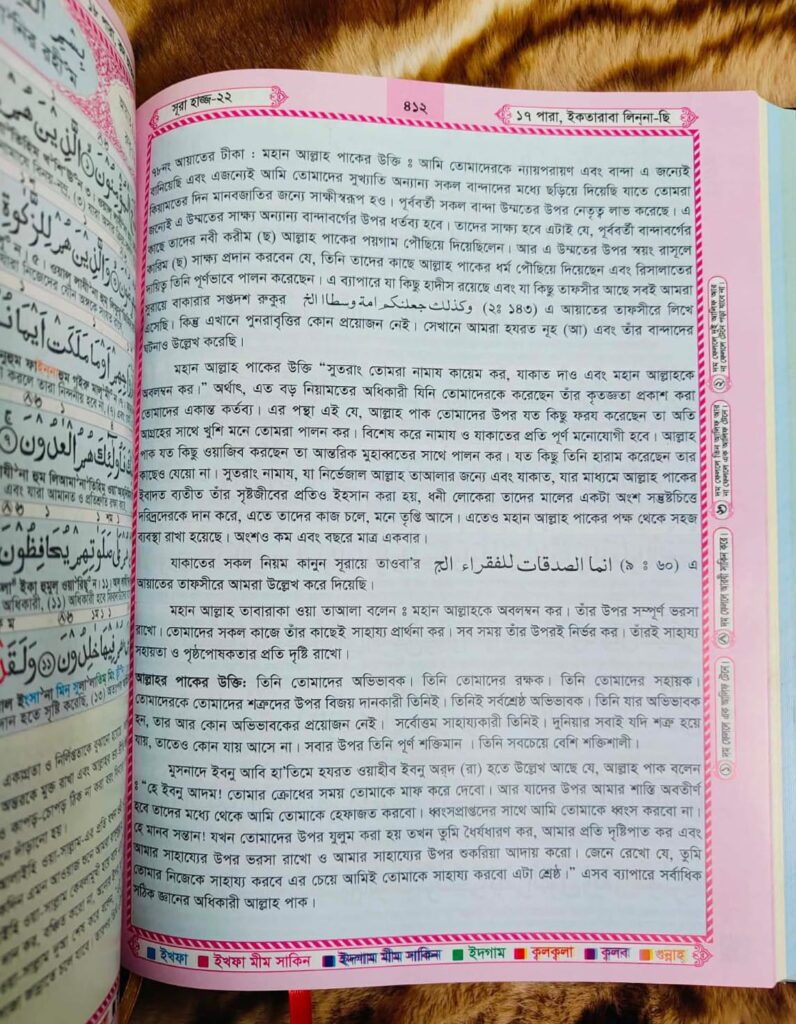 সূরা হাজ্জ-২২
৪১২
১৭ পারা, ইকতারাবা লিন্‌না-ছি
৭৮নং আয়াতের টীকা : মহান আল্লাহ পাকের উক্তি ঃ আমি তোমাদেরকে ন্যায়পরায়ণ এবং বান্দা এ জন্যেই
বানিয়েছি এবং এজন্যেই আমি তোমাদের সুখ্যাতি অন্যান্য সকল বান্দাদের মধ্যে ছড়িয়ে দিয়েছি যাতে তোমরা
কিয়ামতের দিন মানবজাতির জন্যে সাক্ষীস্বরূপ হও। পূর্ববর্তী সকল বান্দা উম্মতের উপর নেতৃত্ব লাভ করেছে। এ
জন্যেই এ উম্মতের সাক্ষ্য অন্যান্য বান্দাবর্গের উপর ধর্তব্য হবে। তাদের সাক্ষ্য হবে এটাই যে, পূর্ববর্তী বান্দাবর্গের
কাছে তাদের নবী করীম (ছ) আল্লাহ পাকের পয়গাম পৌছিয়ে দিয়েছিলেন। আর এ উম্মতের উপর স্বয়ং রাসূলে
কারিম (ছ) সাক্ষ্য প্রদান করবেন যে, তিনি তাদের কাছে আল্লাহ পাকের ধর্ম পৌছিয়ে দিয়েছেন এবং রিসালাতের
দায়িত্ব তিনি পূর্ণভাবে পালন করেছেন। এ ব্যাপারে যা কিছু হাদীস রয়েছে এবং যা কিছু তাফসীর আছে সবই আমরা
সূরায়ে বাকারার সপ্তদশ রুকুর وكذلك جعلنكم امة وسطا الخ (২ঃ ১৪৩) এ আয়াতের তাফসীরে লিখে
এসেছি। কিন্তু এখানে পুনরাবৃত্তির কোন প্রয়োজন নেই। সেখানে আমরা হযরত নূহ (আ) এবং তাঁর বান্দাদের
ঘটনাও উল্লেখ করেছি।
মহান আল্লাহ পাকের উক্তি “সুতরাং তোমরা নামায কায়েম কর, যাকাত দাও এবং মহান আল্লাহকে
অবলম্বন কর।” অর্থাৎ, এত বড় নিয়ামতের অধিকারী যিনি তোমাদেরকে করেছেন তাঁর কৃতজ্ঞতা প্রকাশ করা
তোমাদের একান্ত কর্তব্য। এর পন্থা এই যে, আল্লাহ পাক তোমাদের উপর যত কিছু ফরয করেছেন তা অতি
আগ্রহের সাথে খুশি মনে তোমরা পালন কর। বিশেষ করে নামায ও যাকাতের প্রতি পূর্ণ মনোযোগী হবে। আল্লাহ
পাক যত কিছু ওয়াজিব করছেন তা আন্তরিক মুহাব্বতের সাথে পালন কর। যত কিছু তিনি হারাম করেছেন তার
কাছেও যেয়ো না। সুতরাং নামায, যা নির্ভেজাল আল্লাহ তাআলার জন্যে এবং যাকাত, যার মাধ্যমে আল্লাহ পাকের
ইবাদত ব্যতীত তাঁর সৃষ্টজীবের প্রতিও ইহসান করা হয়, ধনী লোকেরা তাদের মালের একটা অংশ সন্তুষ্টচিত্তে
দরিদ্রদেরকে দান করে, এতে তাদের কাজ চলে, মনে তৃপ্তি আসে। এতেও মহান আল্লাহ পাকের পক্ষ থেকে সহজ
ব্যবস্থা রাখা হয়েছে। অংশও কম এবং বছরে মাত্র একবার।
যাকাতের সকল নিয়ম কানুন সূরায়ে তাওবা'র انما الصدقات للفقراء الخ (৯ ঃ ৬০) এ
আয়াতের তাফসীরে আমরা উল্লেখ করে দিয়েছি।
মহান আল্লাহ তাবারাকা ওয়া তাআলা বলেন ঃ মহান আল্লাহকে অবলম্বন কর। তাঁর উপর সম্পূর্ণ ভরসা
রাখো। তোমাদের সকল কাজে তাঁর কাছেই সাহায্য প্রার্থনা কর। সব সময় তাঁর উপরই নির্ভর কর। তাঁরই সাহায্য
সহায়তা ও পৃষ্ঠপোষকতার প্রতি দৃষ্টি রাখো।
আল্লাহর পাকের উক্তি: তিনি তোমাদের অভিভাবক। তিনি তোমাদের রক্ষক। তিনি তোমাদের সহায়ক।
তোমাদেরকে তোমাদের শত্রুদের উপর বিজয় দানকারী তিনিই। তিনিই সর্বশ্রেষ্ঠ অভিভাবক। তিনি যার অভিভাবক
হন, তার আর কোন অভিভাবকের প্রয়োজন নেই। সর্বোত্তম সাহায্যকারী তিনিই। দুনিয়ার সবাই যদি শত্রু হয়ে
যায়, তাতেও কোন যায় আসে না। সবার উপর তিনি পূর্ণ শক্তিমান । তিনি সবচেয়ে বেশি শক্তিশালী।
মুসনাদে ইবনু আবি হা'তিমে হযরত ওয়াহীব ইবনু অর্‌দ (রা) হতে উল্লেখ আছে যে, আল্লাহ পাক বলেন
ঃ “হে ইবনু আদম! তোমার ক্রোধের সময় তোমাকে মাফ করে দেবো। আর যাদের উপর আমার শাস্তি অবতীর্ণ
হবে তাদের মধ্যে থেকে আমি তোমাকে হেফাজত করবো। ধ্বংসপ্রাপ্তদের সাথে আমি তোমাকে ধ্বংস করবো না।
হে মানব সন্তান! যখন তোমাদের উপর যুলুম করা হয় তখন তুমি ধৈর্যধারণ কর, আমার প্রতি দৃষ্টিপাত কর এবং
আমার সাহায্যের উপর ভরসা রাখো ও আমার সাহায্যের উপর শুকরিয়া আদায় করো। জেনে রেখো যে, তুমি
তোমার নিজেকে সাহায্য করবে এর চেয়ে আমিই তোমাকে সাহায্য করবো এটা শ্রেষ্ঠ।” এসব ব্যাপারে সর্বাধিক
সঠিক জ্ঞানের অধিকারী আল্লাহ পাক।
ইখফা ইখফা মীম সাকিন ইদগাম মীম সাকিন ইদগাম কুলকুলা কুলব গুন্নাহ্